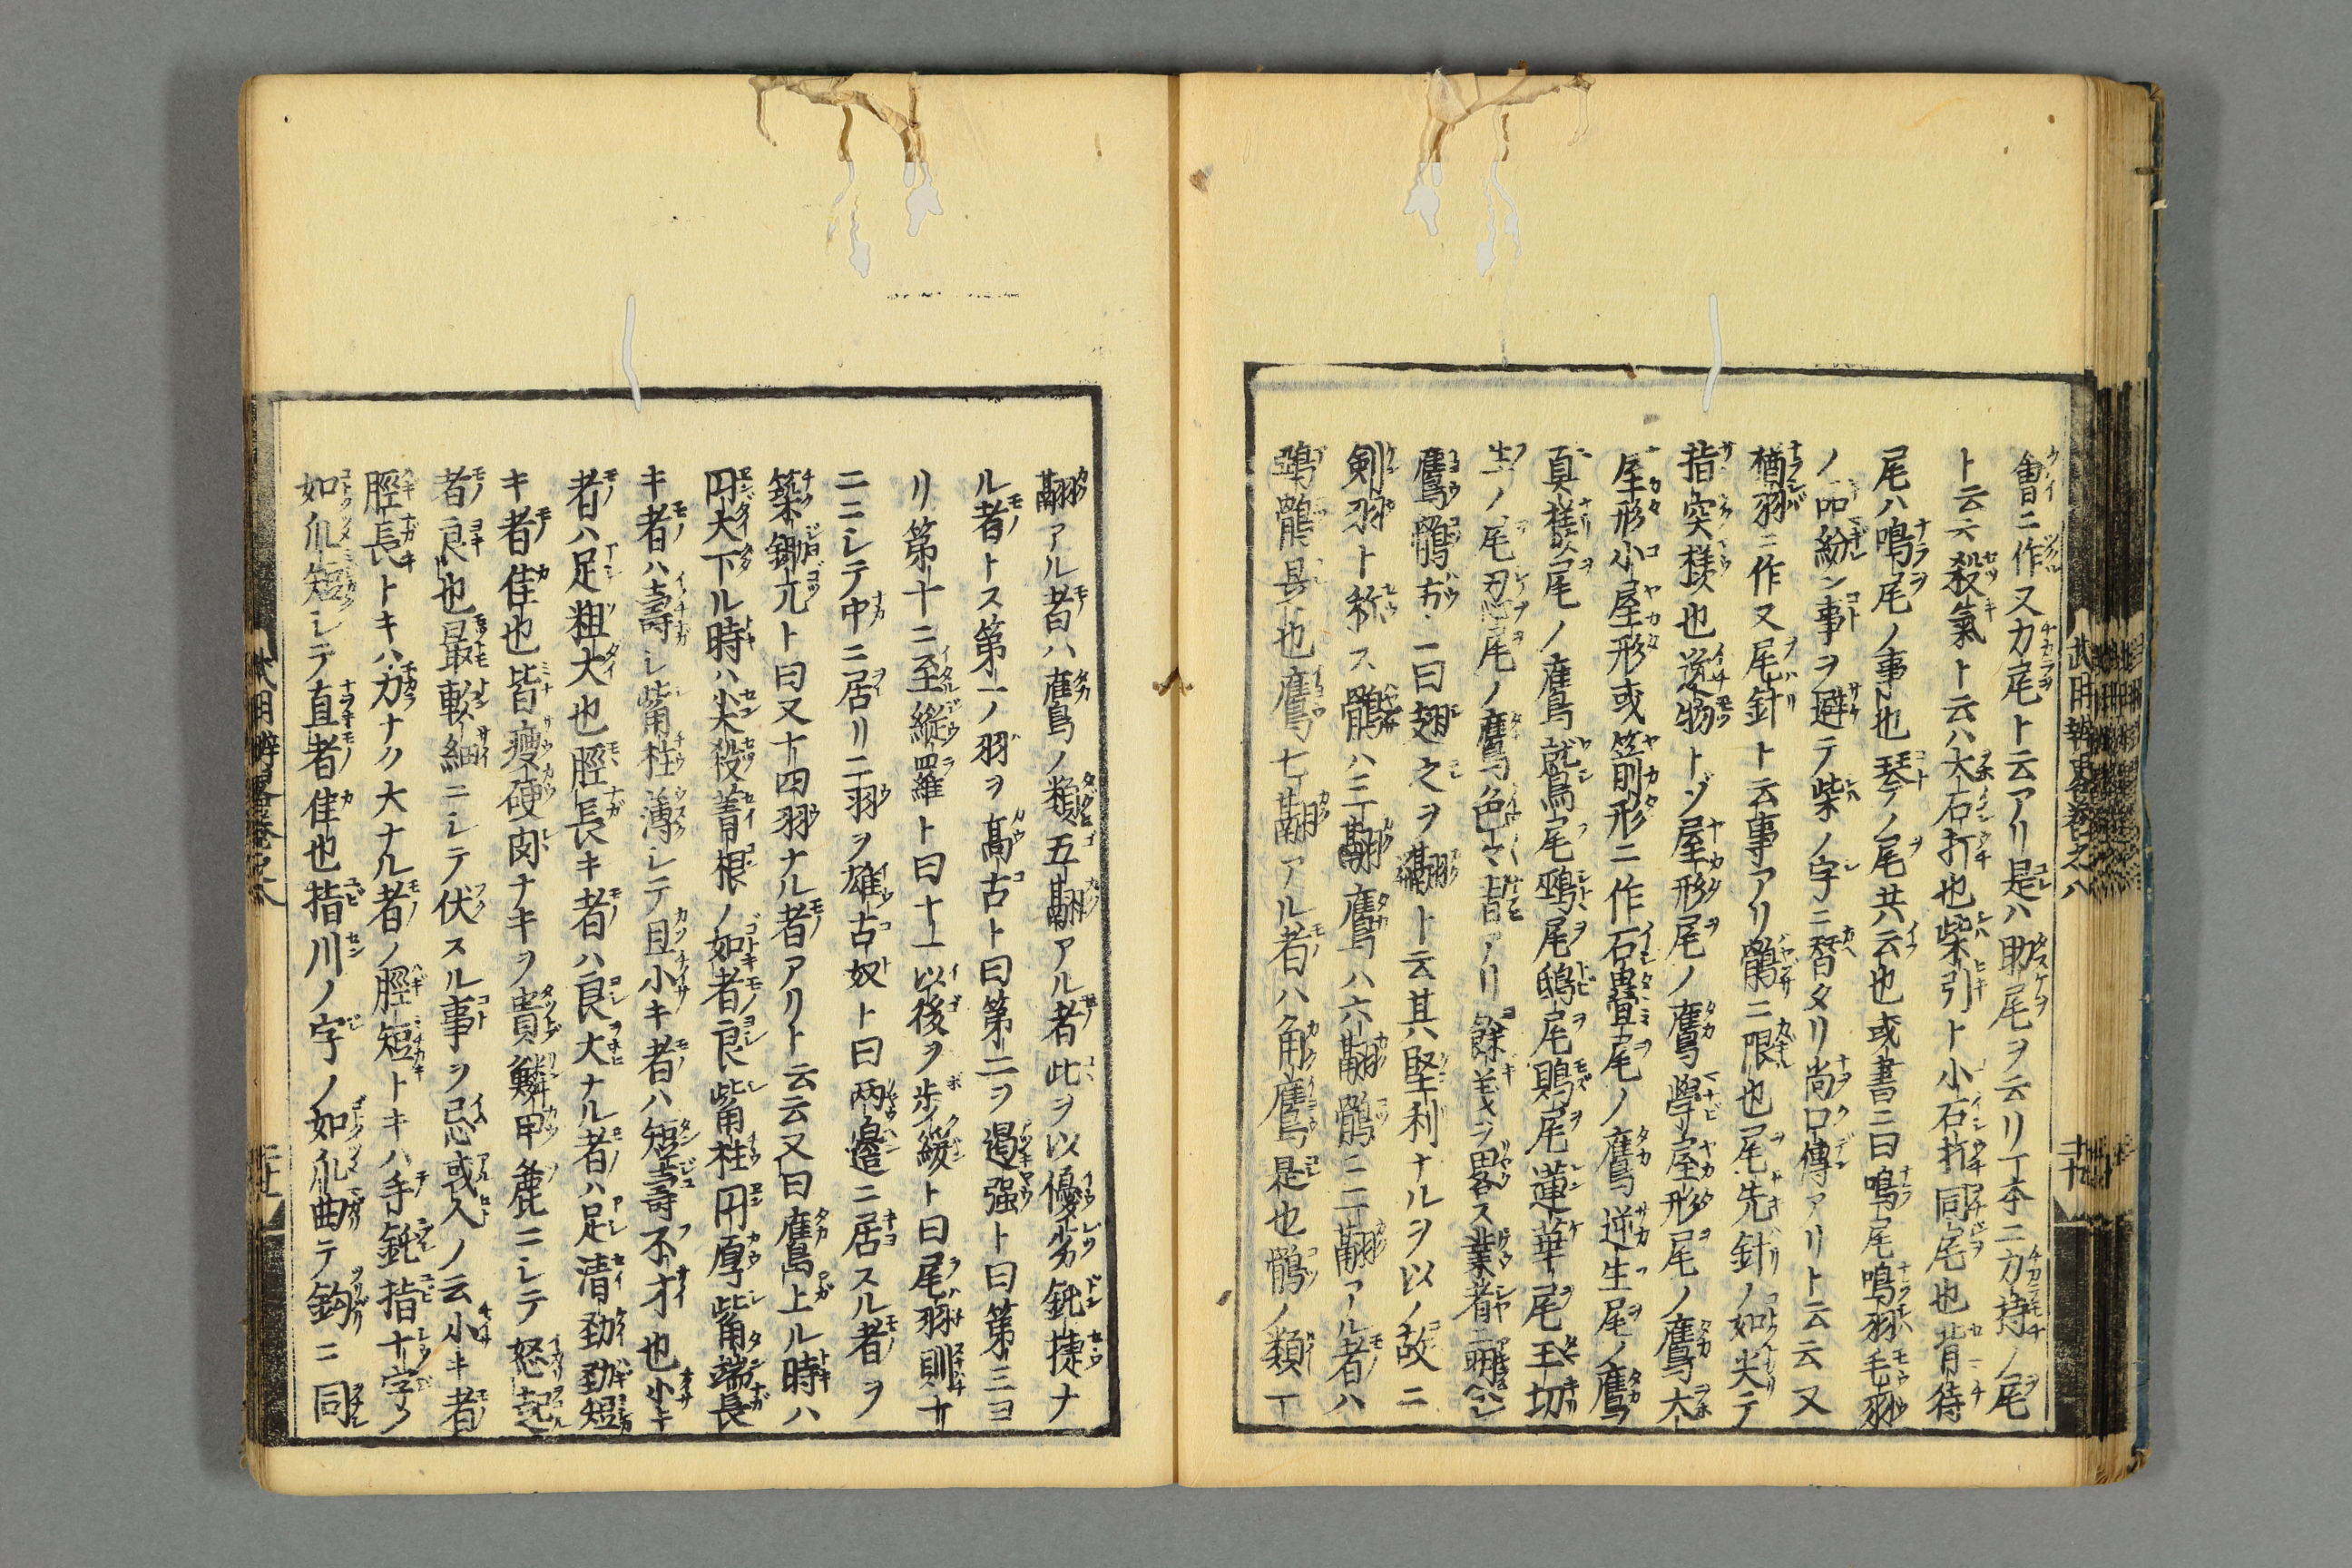 會ニ作又力尾ト云アリ是ハ助尾ヲ云リ丁本ニ力持ノ尾
ト云六殺氣ト云ハ大石打也柴引ト小石打同尾也背待
尾ハ鳴尾ノ事也琴ノ尾共云也或書ニ曰鳴尾鳴羽毛羽
ノ品紛ン事ヲ避テ柴ノ字ニ替タリ尚口傳アリト云云又
楢羽ニ作又尾針ト云事アリ鶻ニ限也尾先針ノ如尖テ
指突様也逆物トゾ屋形尾ノ鷹學屋形尾ノ鷹大
屋形小屋形或箭形ニ作石疊尾ノ鷹逆生尾ノ鷹
真様尾ノ鷹鷲尾鵐尾鴟尾鵙尾蓮華尾王切
生ノ尾忍尾ノ鷹色々皆アリ餘義ヲ畧ス業者ニ
鷹鶻ガ一曰翅之ヲ翮ト云其堅利ナルヲ以ノ故ニ
剣羽ト称ス鶻ハ三翮鷹ハ六翮鶻ニ二翮アル者ハ
鵶鶻是也鷹七翮アル者ハ角鷹是也鶻ノ類丁
翮アル者ハ鷹ノ類五翮アル者此ヲ以優劣鈍捷ナ
ル者トス第一ノ羽ヲ高古ト曰第二ヲ遏强ト曰第三ヨ
リ第十ニ至縦羅ト曰十一以後ヲ歩緩ト曰尾羽則十
二ニシテ中ニ居リ二羽ヲ雄古奴ト曰兩邊ニ居スル者ヲ
築鋤兀ト曰又十四羽ナル者アリト云云又曰鷹上ル時ハ
円大下ル時ハ尖殺菁根ノ如者良觜柱円厚觜端長
キ者ハ壽シ觜柱薄シテ且小キ者ハ短壽不才也小キ
者ハ足粗大也脛長キ者ハ良大ナル者ハ足清勁勁短
キ者佳也皆瘦硬肉ナキヲ貴鱗甲麁ニシテ怒起
者良也最軟細ニシテ伏スル事ヲ忌或人ノ云小キ者
脛長トキハ力ナク大ナル者ノ脛短トキハ手鈍指十字ノ
如爪短シテ直者佳也指川ノ字ノ如爪曲テ鈎ニ同
武用辨畧巻之八
二十
武用辨畧巻之八
二十一